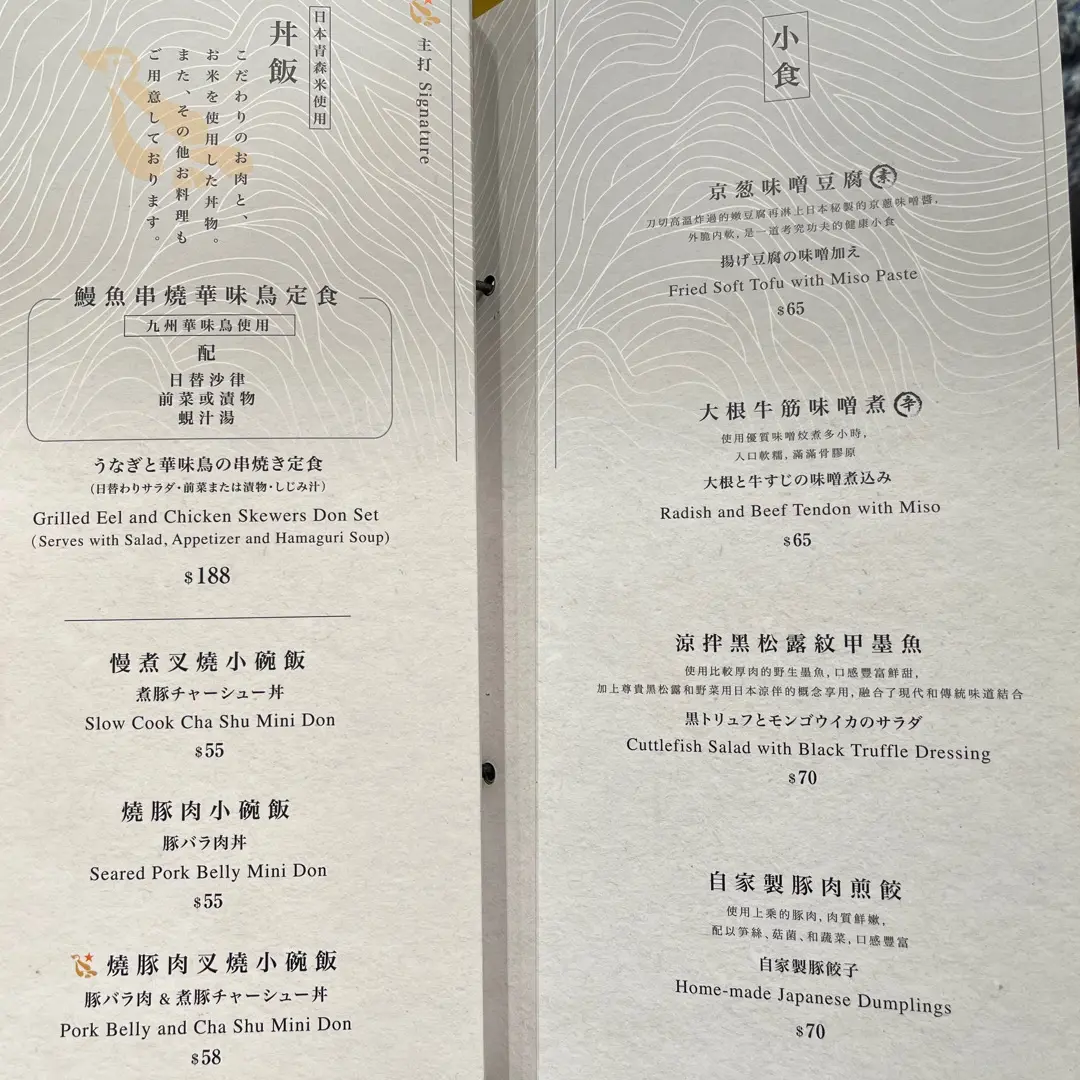 主打 Signature
日本青森米使用
丼飯
こだわりのお肉と、
お米を使用した丼物。
また、その他お料理も
ご用意しております。
鰻魚串燒華味鳥定食
九州華味鳥使用
配
日替沙律
前菜或漬物
蜆汁湯
うなぎと華味鳥の串焼き定食
(日替わりサラダ・前菜または漬物・しじみ汁)
Grilled Eel and Chicken Skewers Don Set
(Serves with Salad, Appetizer and Hamaguri Soup)
$188
慢煮叉燒小碗飯
煮豚チャーシュー丼
Slow Cook Cha Shu Mini Don
$55
燒豚肉小碗飯
豚バラ肉丼
Seared Pork Belly Mini Don
$55
燒豚肉叉燒小碗飯
豚バラ肉 & 煮豚チャーシュー丼
Pork Belly and Cha Shu Mini Don
$58
小食
京葱味噌豆腐 素
刀切高溫炸過的嫩豆腐再淋上日本秘製的京蔥味噌醬,
外脆内軟,是一道考究功夫的健康小食
揚げ豆腐の味噌加え
Fried Soft Tofu with Miso Paste
$65
大根牛筋味噌煮 辛
使用優質味噌炆煮多小時,
入口軟糯,滿滿骨膠原
大根と牛すじの味噌煮込み
Radish and Beef Tendon with Miso
$65
涼拌黑松露紋甲墨魚
使用比較厚肉的野生墨魚,口感豐富鮮甜,
加上尊貴黑松露和野菜用日本涼伴的概念享用,融合了現代和傳統味道結合
黒トリュフとモンゴウイカのサラダ
Cuttlefish Salad with Black Truffle Dressing
$70
自家製豚肉煎餃
使用上乘的豚肉,肉質鮮嫩,
配以笋絲、菇菌、和蔬菜,口感豐富
自家製豚餃子
Home-made Japanese Dumplings
$70